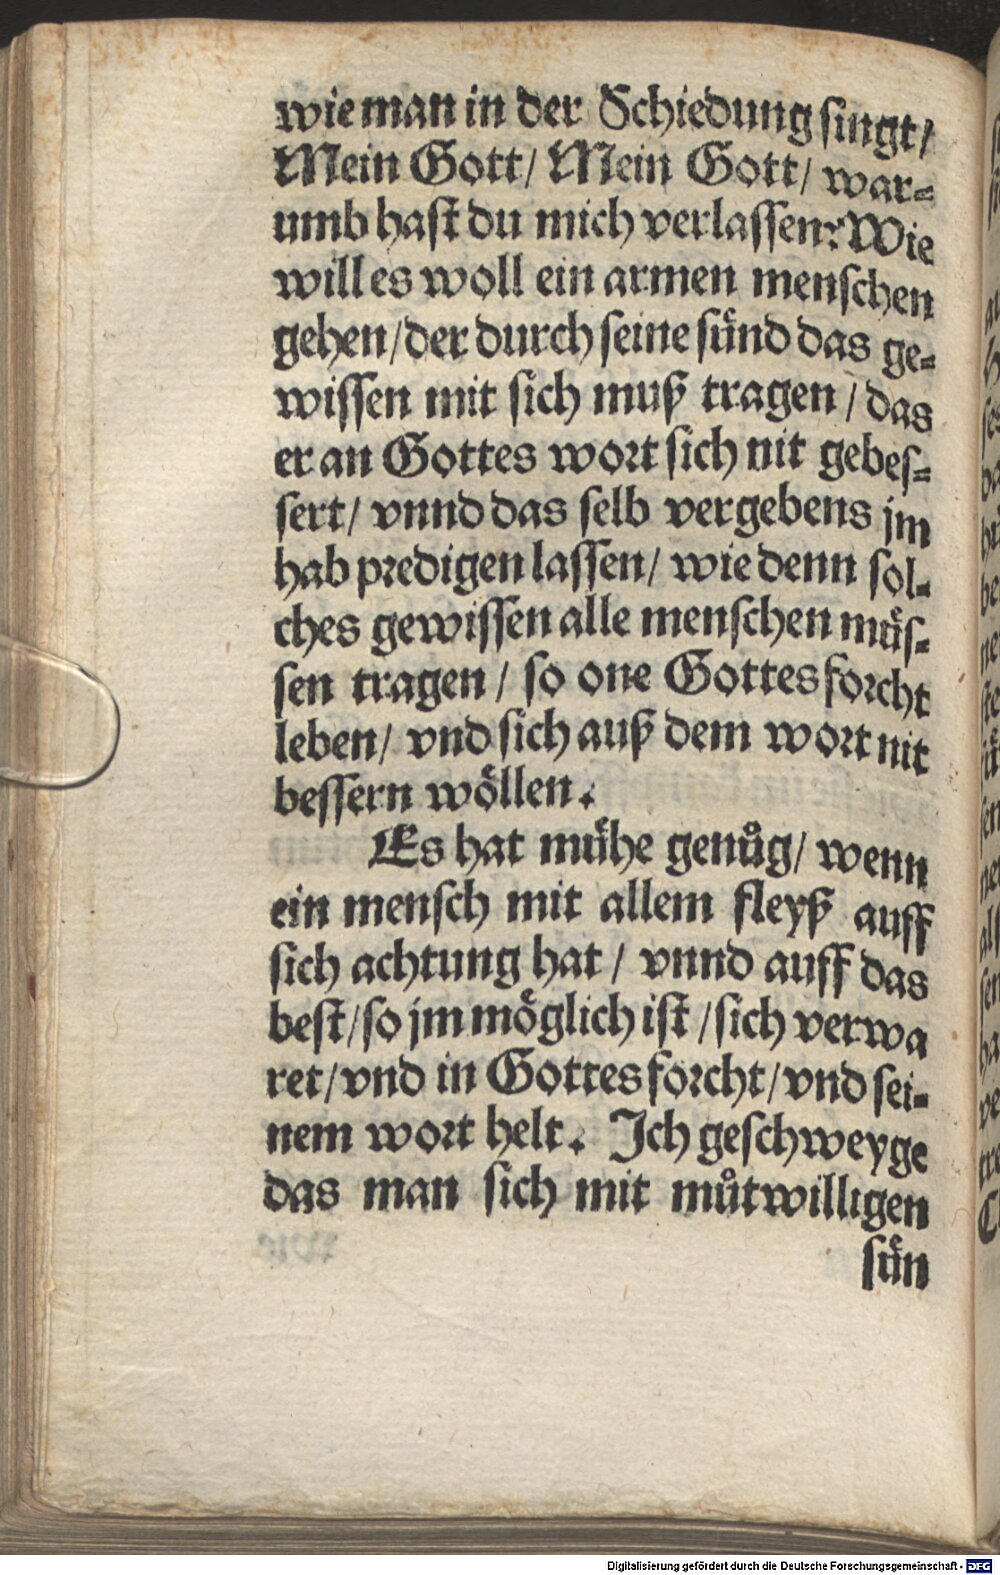 wie man in der Schiedung singt/
Mein Gott/ Mein Gott/ war-
umb hast du mich verlassen? Wie
will es woll ein armen menschen
gehen/ der durch seine suͤnd das ge-
wissen mit sich muß tragen/ das
er an Gottes wort sich nit gebes-
sert/ vnnd das selb vergebens jm
hab predigen lassen/ wie denn sol-
ches gewissen alle menschen muͤs-
sen tragen/ so one Gottes forcht
leben/ vnd sich auß dem wort nit
bessern woͤllen.
Es hat muͤhe genuͦg/ wenn
ein mensch mit allem fleyß auff
sich achtung hat/ vnnd auff das
best/ so jm moͤglich ist/ sich verwa
ret/ vnd in Gottes forcht/ vnd sei-
nem wort helt. Ich geschweyge
das man sich mit muͦtwilligen
suͤn
Digitalisierung gefördert durch die Deutsche Forschungsgemeinschaft - DFG